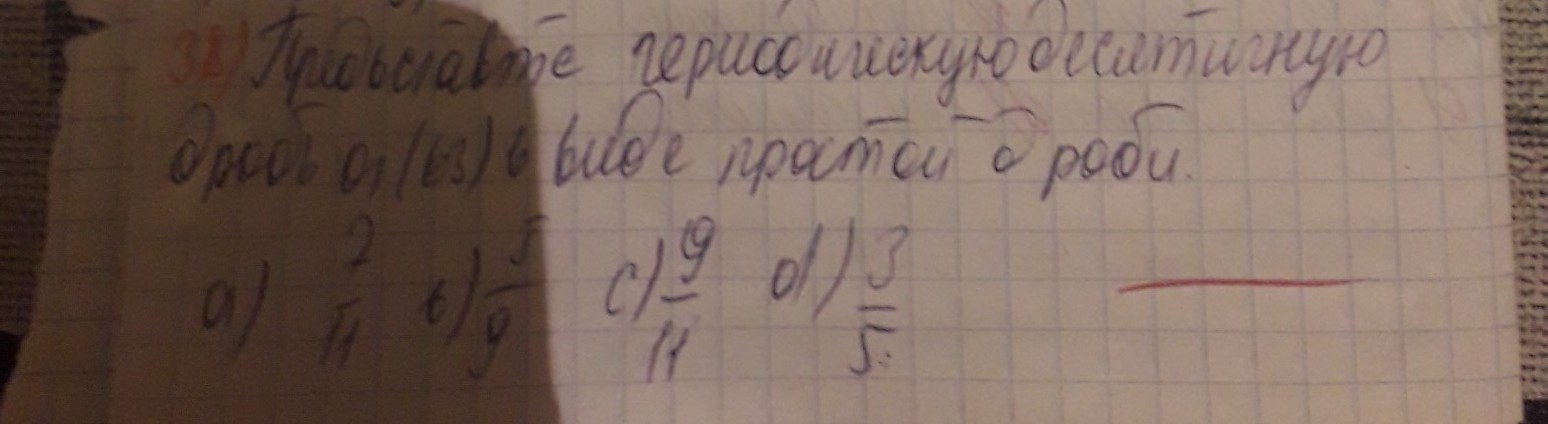 32) Предьставте периодическую десятичную
дробь 0,(63) в виде простой дроби.
a) 7/11 в) 5/9 c) 9/11 d) 3/5